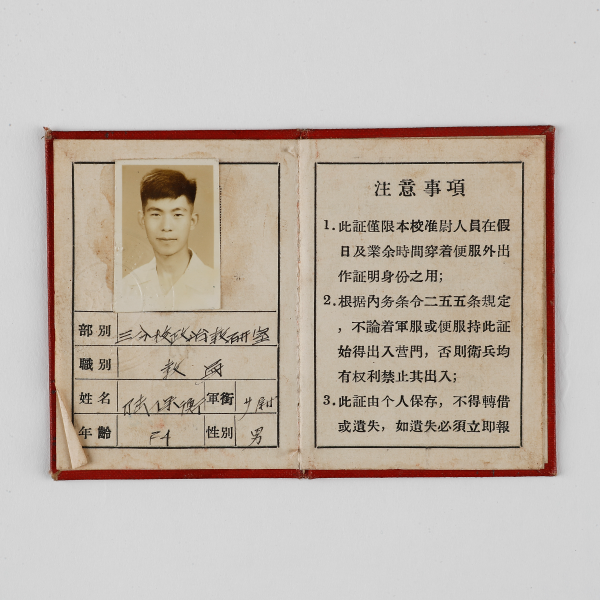 部別 三分校政治教研室
職別 教員
姓名 軍銜
年齡 性別 男
注意事項
1. 此証僅限本校准尉人員在假
日及業余時間穿着便服外出
作証明身份之用;
2. 根据内务条令二五五条規定
, 不論着軍服或便服持此証
始得出入营門, 否則衛兵均
有权利禁止其出入;
3. 此証由个人保存, 不得轉借
或遺失, 如遺失必須立即報